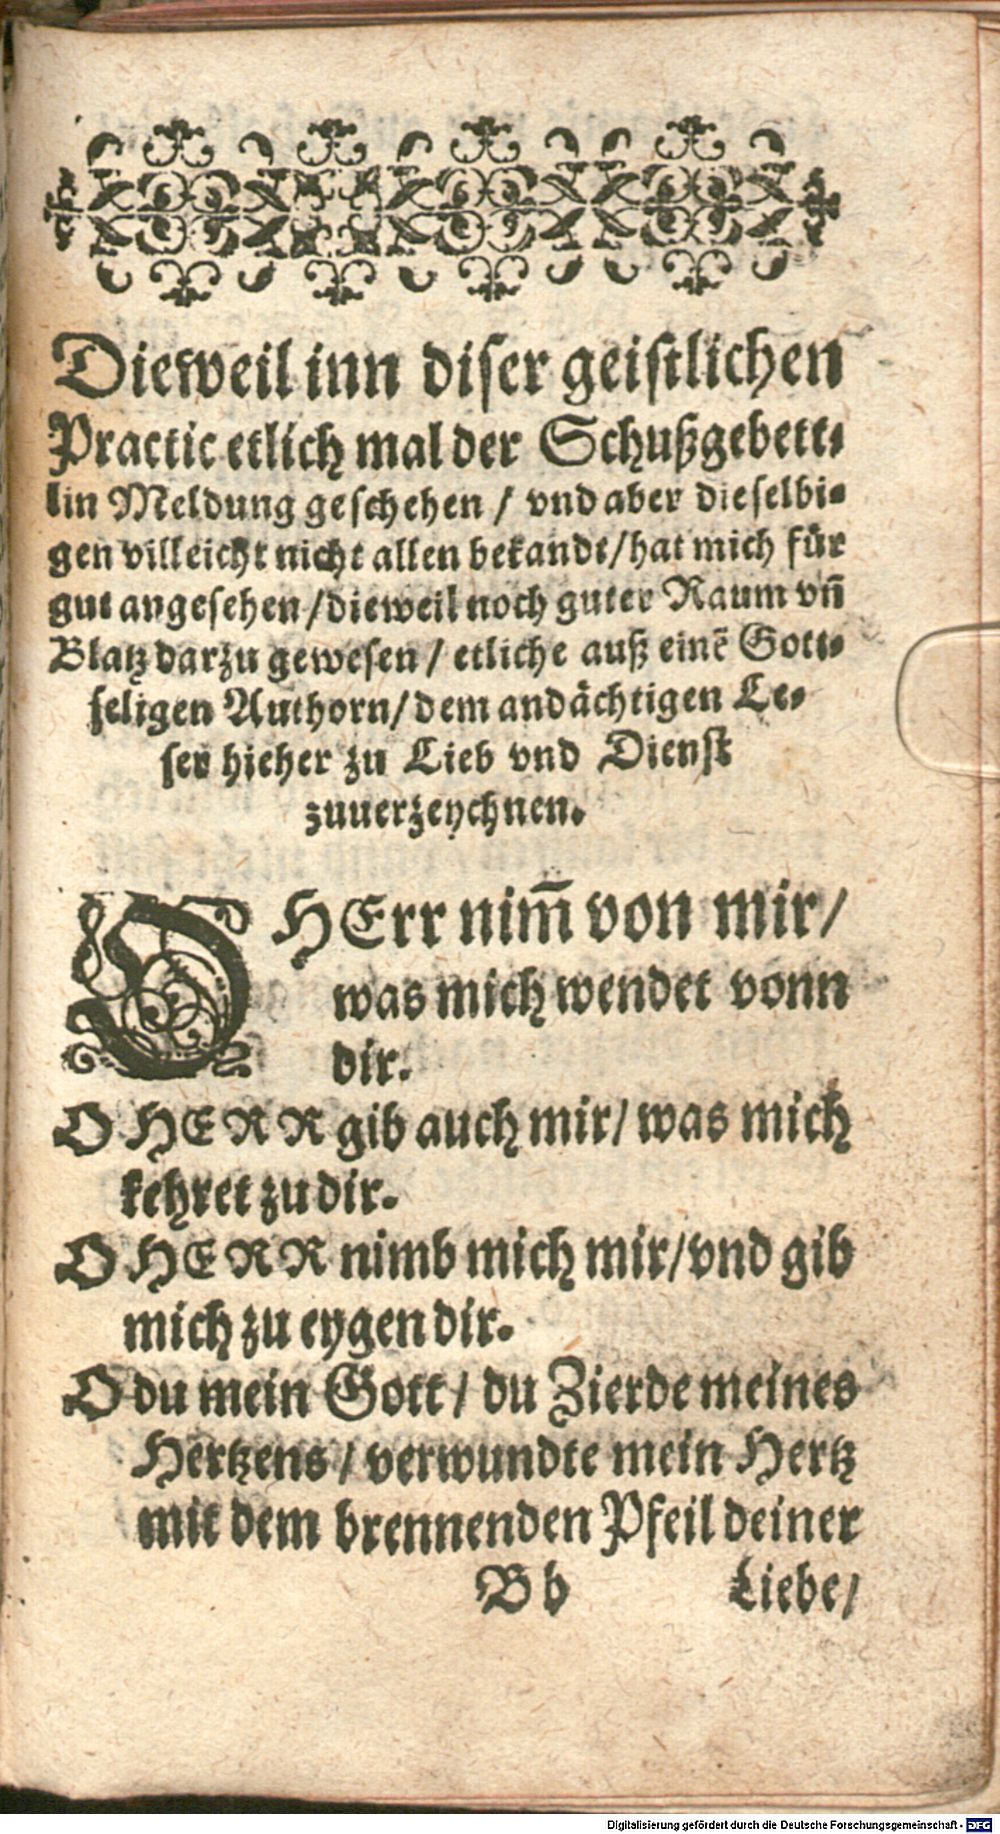 Dieweil inn diser geistlichen
Practic etlich mal der Schußgebett⸗
lin Meldung geschehen / vnd aber dieselbi⸗
gen villeicht nicht allen bekandt/hat mich für
gut angesehen/dieweil noch guter Raum vñ
Blatz darzu gewesen / etliche auß einẽ Gott⸗
seligen Authorn/dem andächtigen Le⸗
ser hieher zu Lieb vnd Dienst
zuuerzeychnen.
O HErr nim̃ von mir/
was mich wendet vonn
dir.
O HERR gib auch mir/ was mich
kehret zu dir.
O HERR nimb mich mir/vnd gib
mich zu eygen dir.
O du mein Gott / du Zierde meines
Hertzens / verwundte mein Hertz
mit dem brennenden Pfeil deiner
B b Liebe/
Digitalisierung gefördert durch die Deutsche Forschungsgemeinschaft - DFG